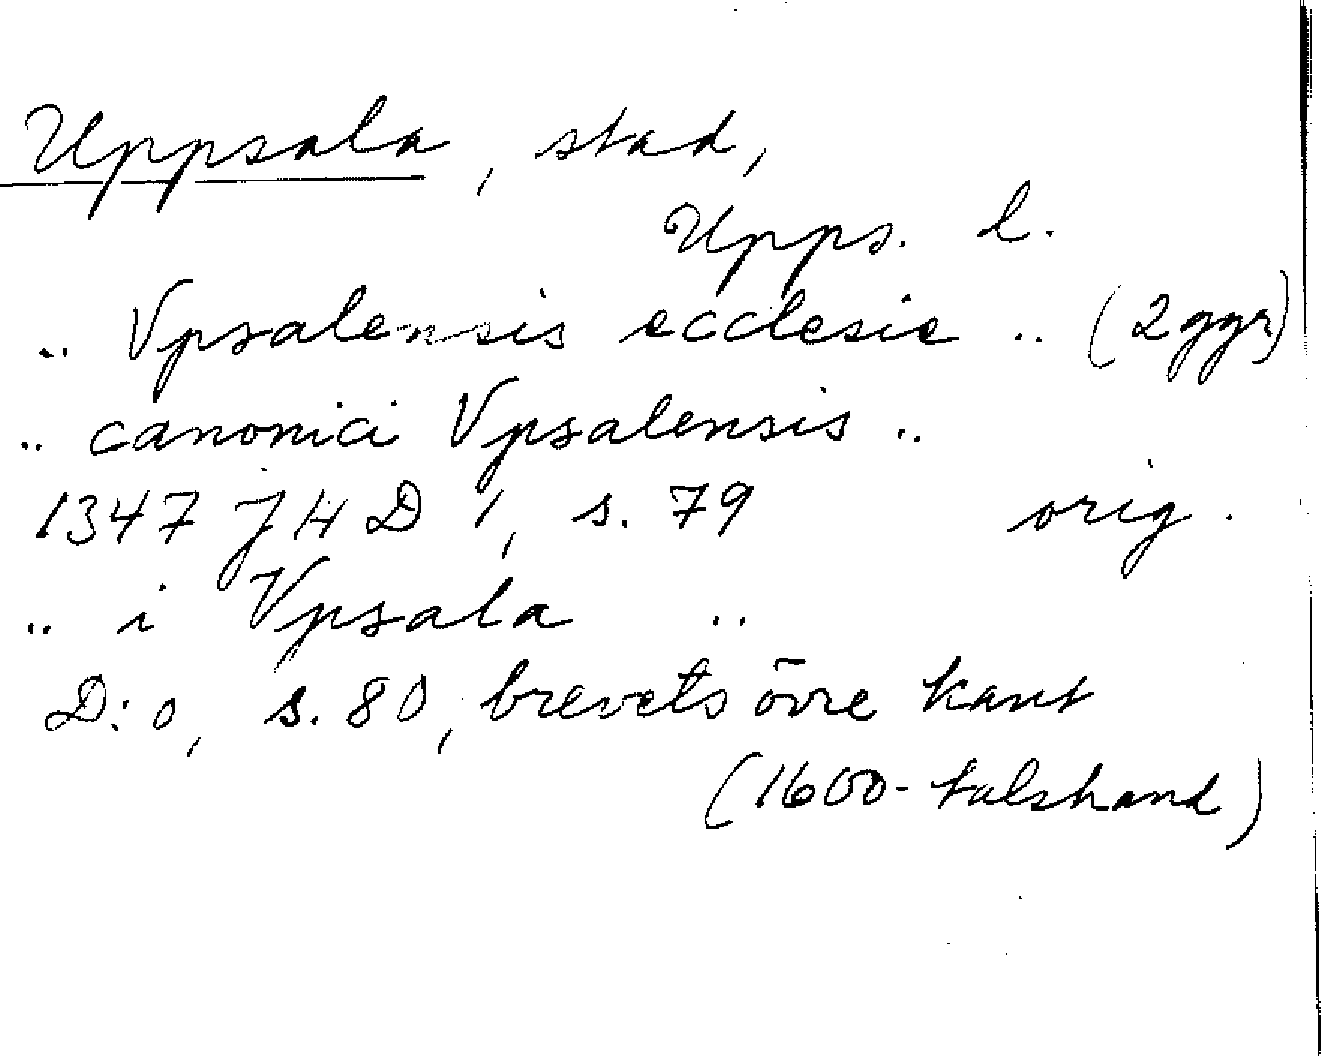 Uppsala, stad,
Upps. l.
.. Vpsalensis ecclesie .. (2ggr)
.. canonici Vpsalensis ..
1347 JHD 1, s. 79 orig.
.. i Vpsala ..
D:o, s. 80, brevets övre kant
(1600-talshand)